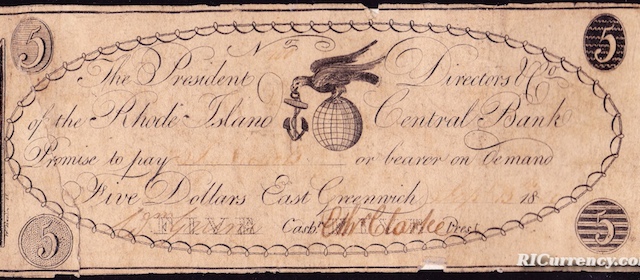 5 No 5
The President Directors & Co
of the Rhode Island Central Bank
Promise to pay or bearer on Demand
Five Dollars East Greenwich 18
FIVE Cashr. Clarke Prest
5 5
RICurrency.co